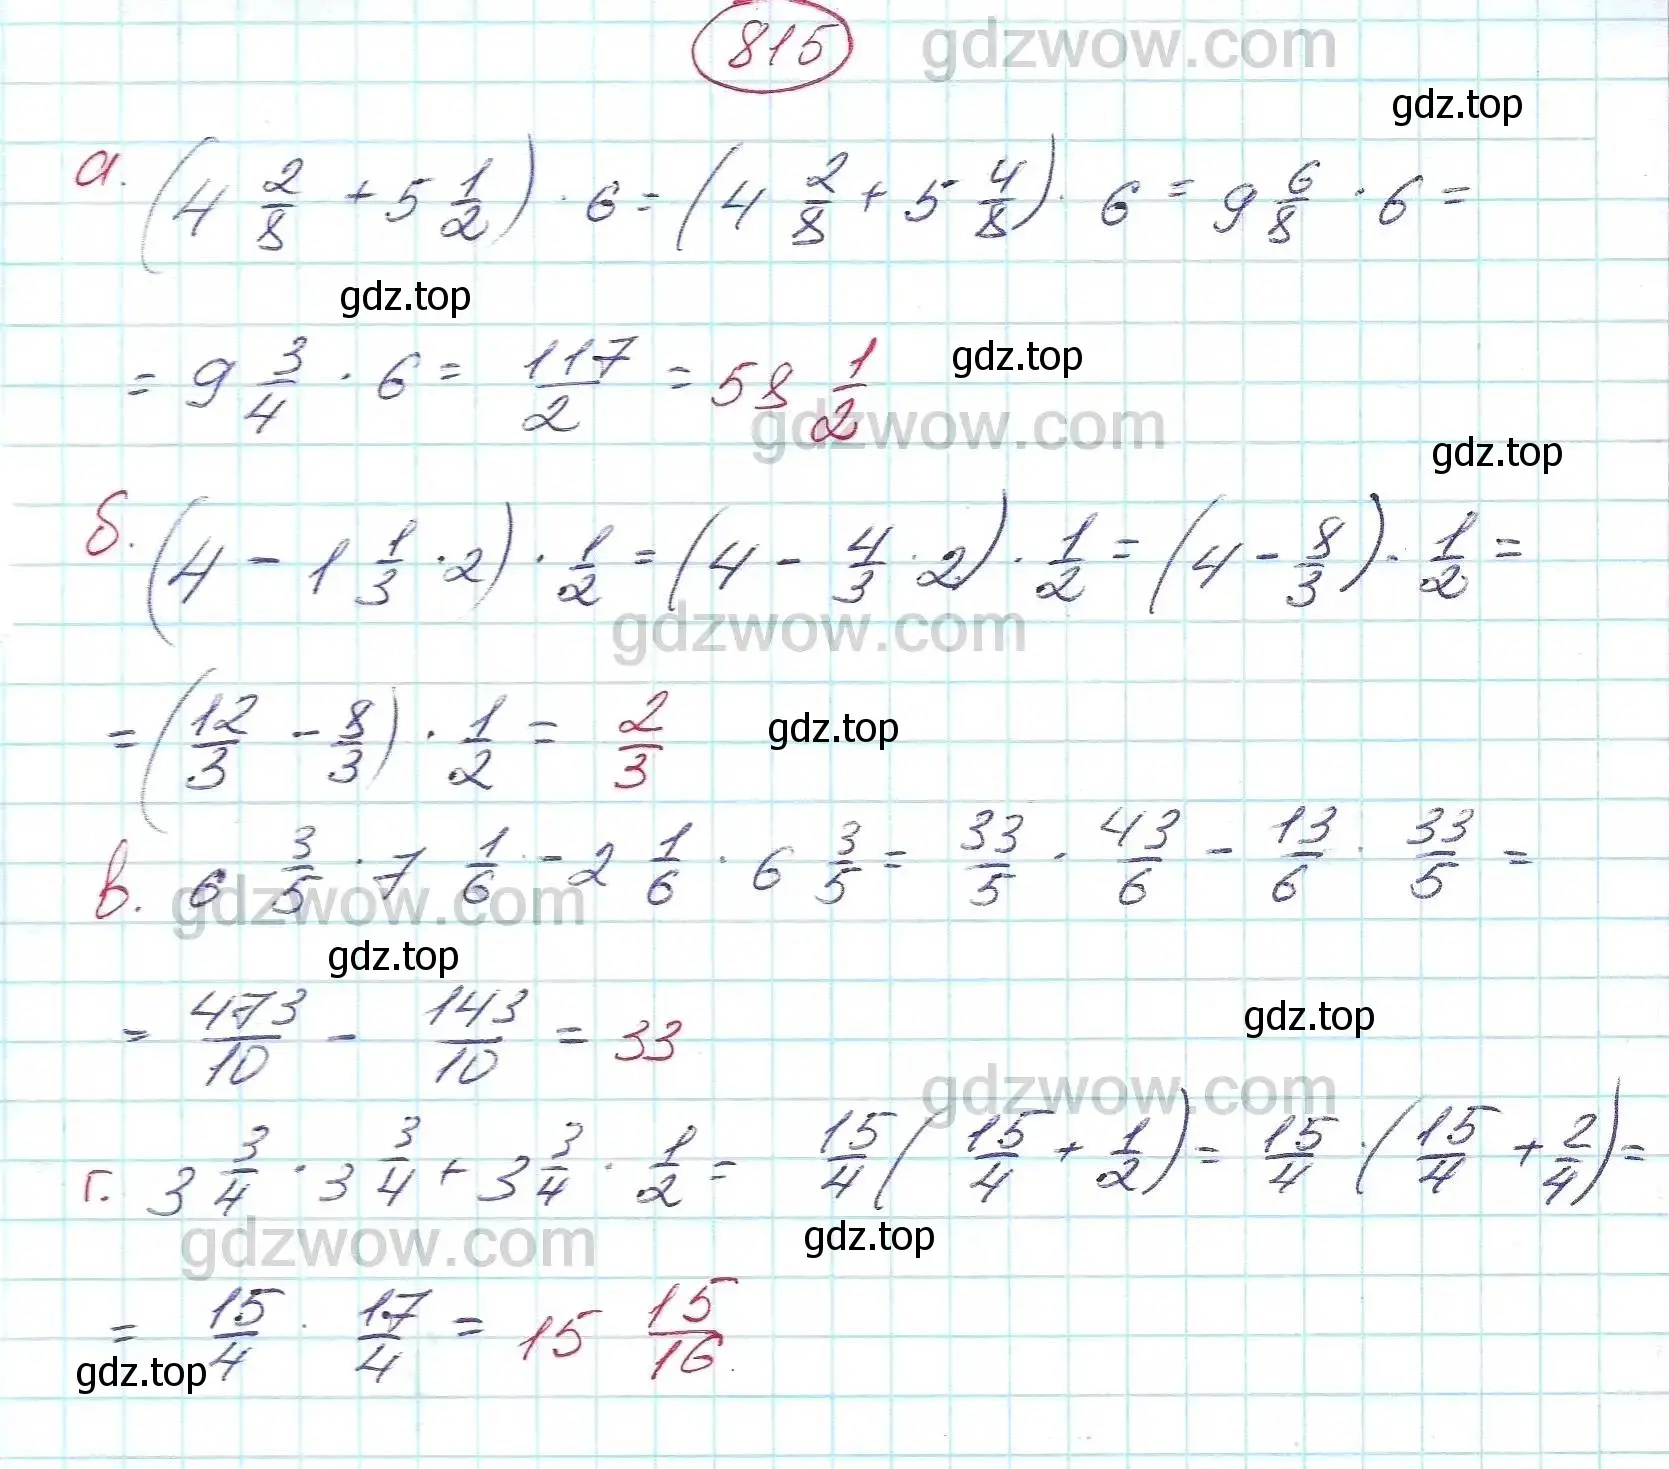 815
gdzwow.com
gdz.top
а. (4 2/8 + 5 1/2) · 6 = (4 2/8 + 5 4/8) · 6 = 9 6/8 · 6 =
gdz.top
= 9 3/4 · 6 = 117/2 = 58 1/2
gdz.top
gdzwow.com
gdz.top
б. (4 - 1 1/3 · 2) · 1/2 = (4 - 4/3 · 2) · 1/2 = (4 - 8/3) · 1/2 =
gdzwow.com
= (12/3 - 8/3) · 1/2 = 2/3
gdz.top
в. 6 3/5 · 7 1/6 - 2 1/6 · 6 3/5 = 33/5 · 43/6 - 13/6 · 33/5 =
gdzwow.com
gdz.top
= 473/10 - 143/10 = 33
gdz.top
gdzwow.com
г. 3 3/4 · 3 3/4 + 3 3/4 · 1/2 = 15/4 (15/4 + 1/2) = 15/4 · (15/4 + 2/4) =
gdzwow.com
gdz.top
= 15/4 · 17/4 = 15 15/16.
gdz.top